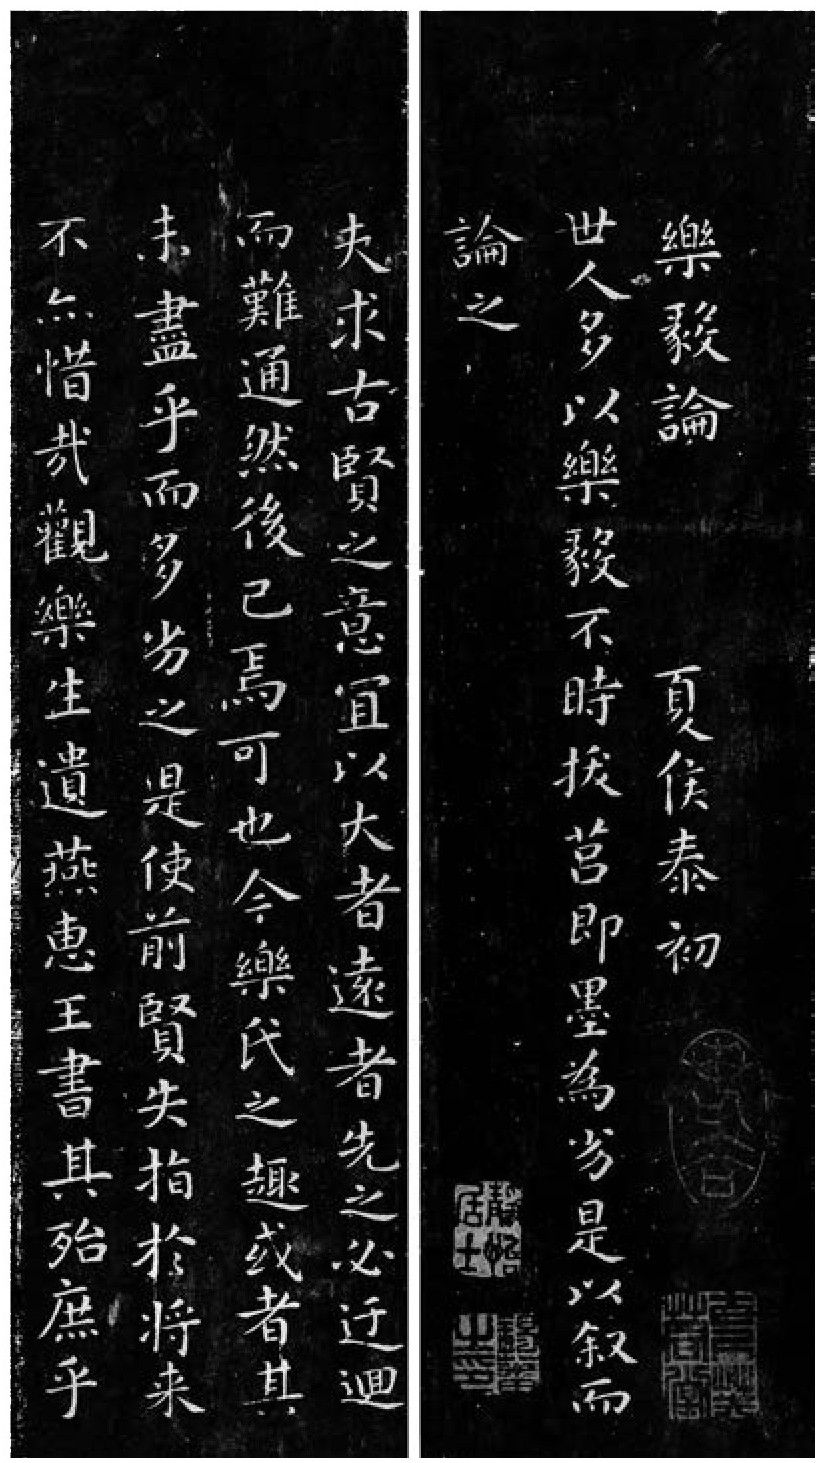 樂毅論　夏侯泰初
世人多以樂毅不時拔莒即墨為劣是以叙而
論之
夫求古賢之意宜以大者遠者先之必迂迴
而難通然後已焉可也今樂氏之趣或者其
未盡乎而多劣之是使前賢失指於将来
不亦惜哉觀樂生遺燕惠王書其殆庶乎